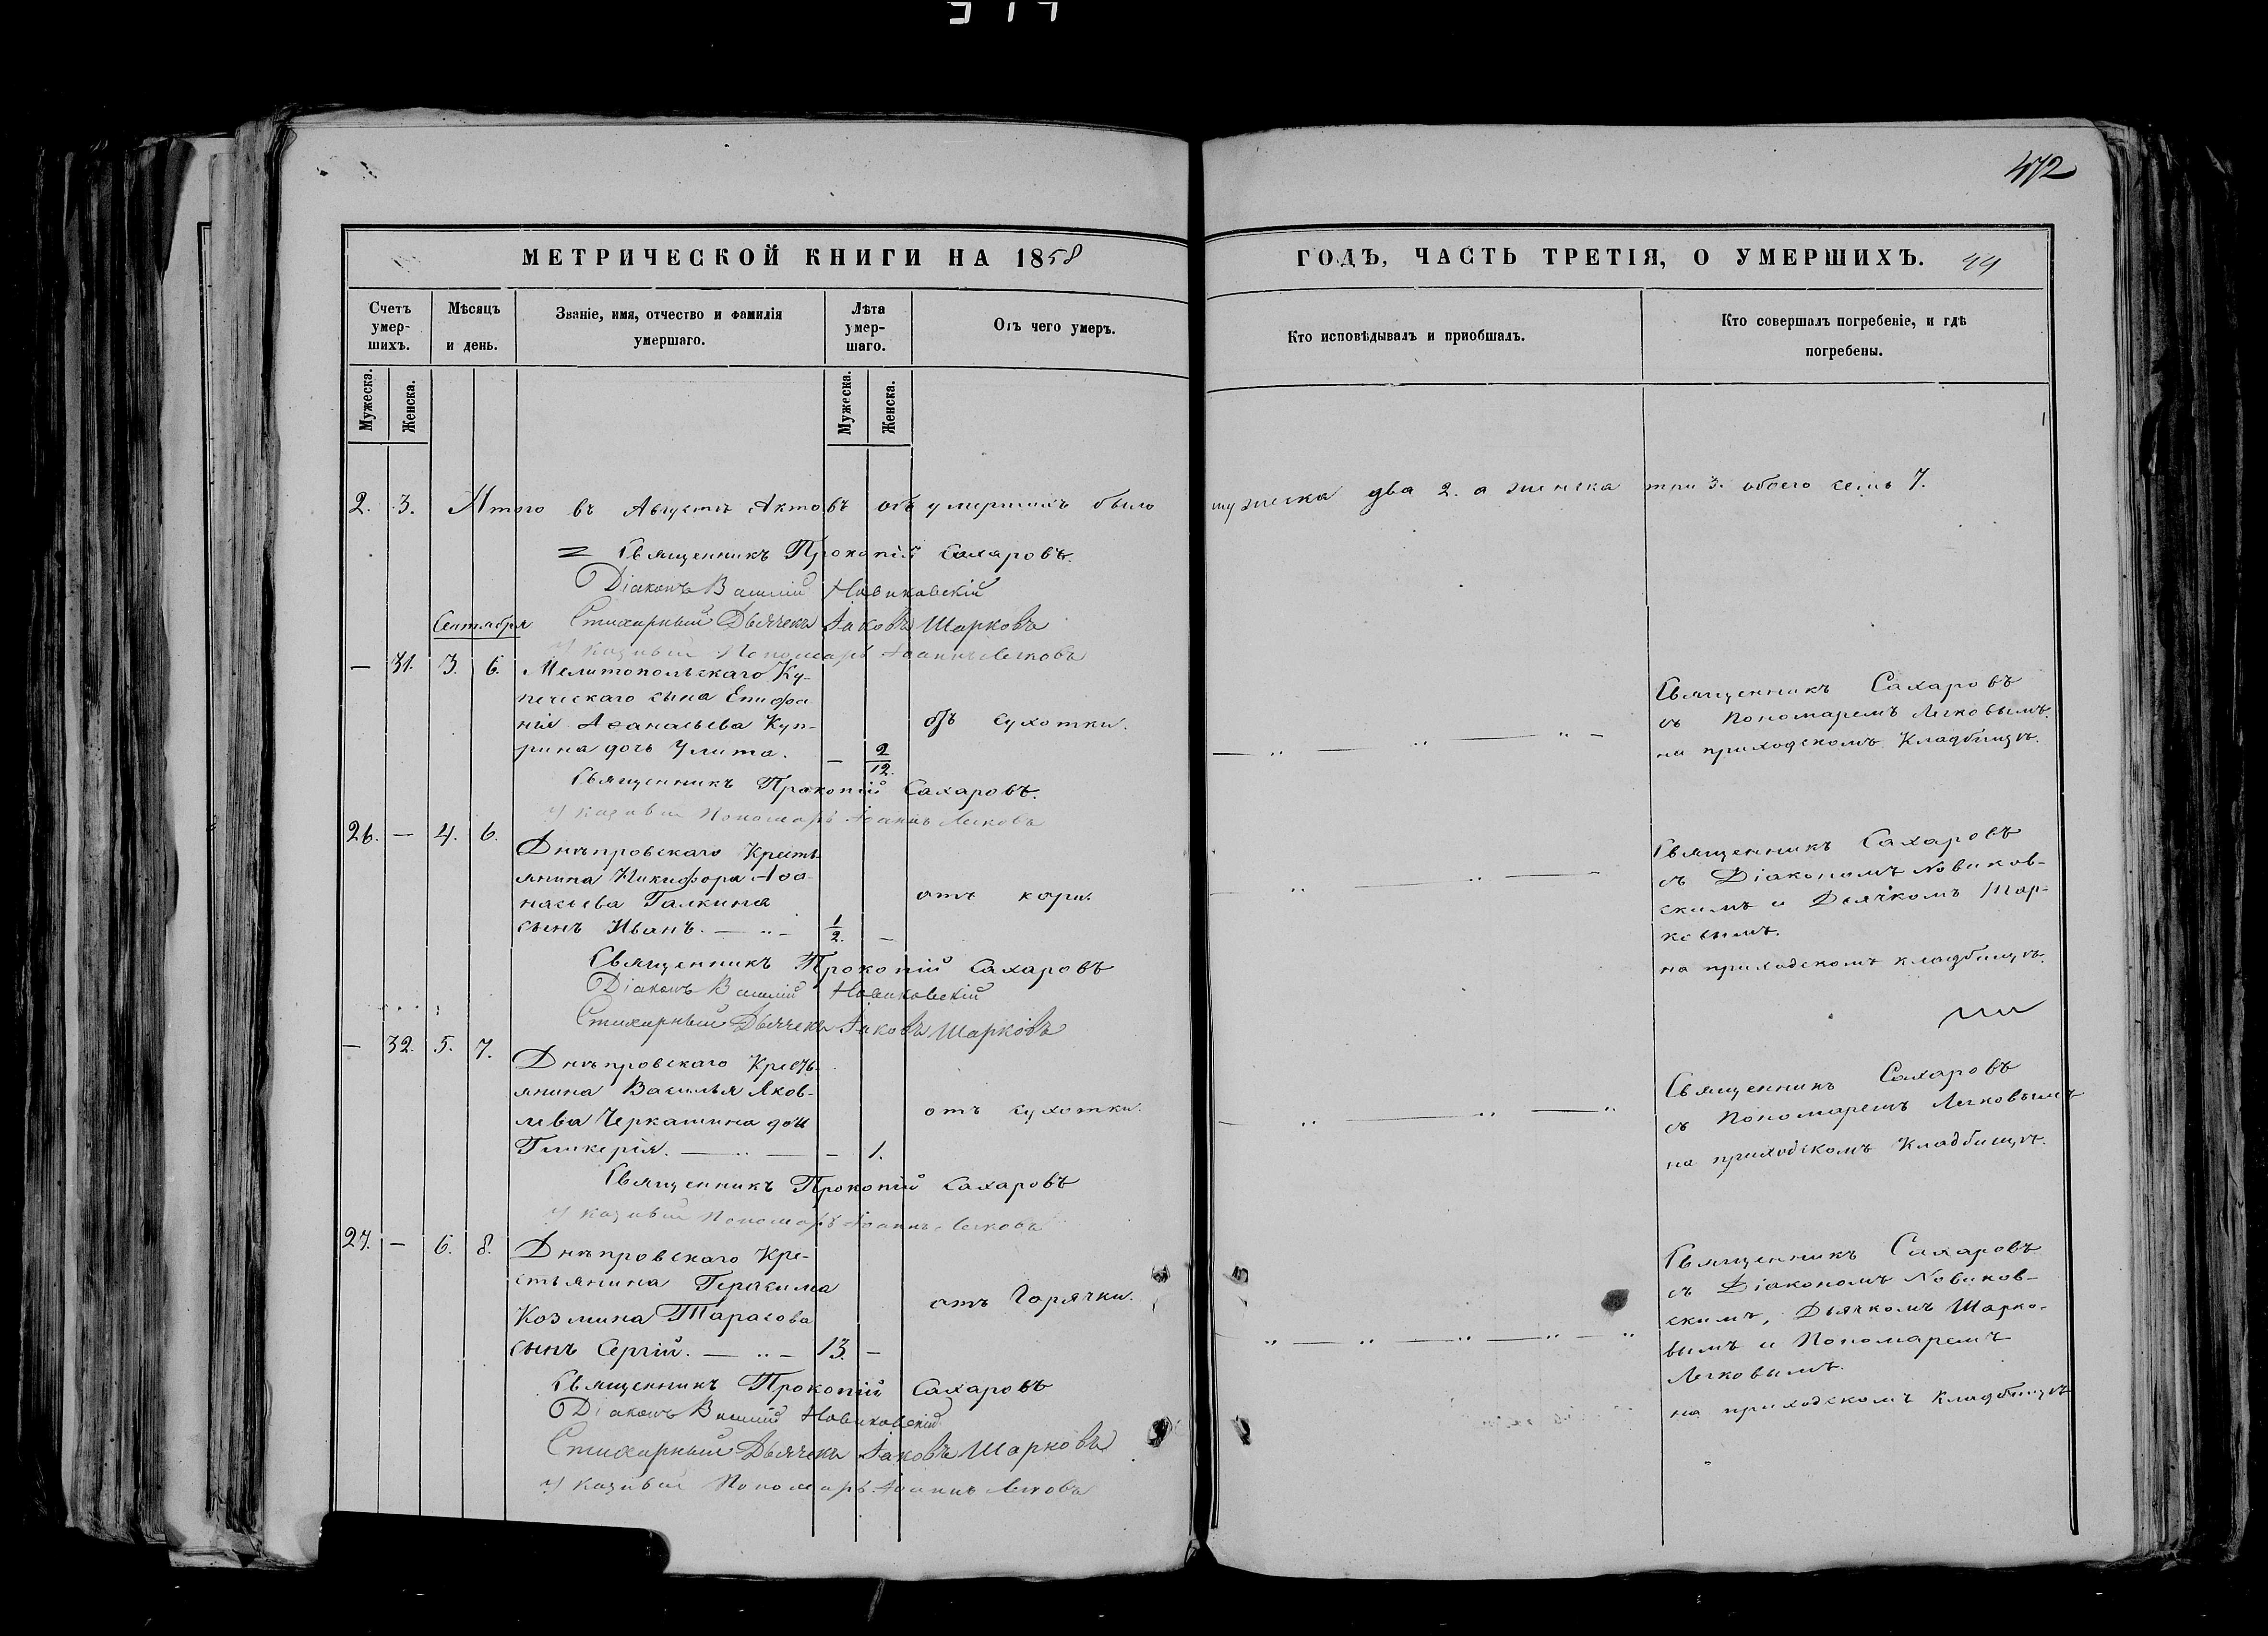 472
МЕТРИЧЕСКОЙ КНИГИ НА 1858
ГОДЪ, ЧАСТЬ ТРЕТІЯ, О УМЕРШИХЪ. 44
Счетъ умер-шихъ.
Мѣсяцъ и день.
Званіе, имя, отчество и фамилія умершаго.
Лѣта умер-шаго.
Отъ чего умеръ.
Кто исповѣдывалъ и пріобщалъ.
Кто совершалъ погребеніе, и гдѣ погребены.
Мужеска. Женска. Мужеска. Женска.
2. 3. Итого въ Августѣ Актовъ объ умершихъ было мужеска два 2. а женска три 3. обоего семь 7.
Священникъ Прокопій Сахаровъ.
Діаконъ Василий Новиковскій
Стихарный Дьячекъ Іаковъ Шарковъ
Пономарь Іоаннъ Легковъ
Сентября
— 31. 3. 6. Мелитопольскаго Ку-
печескаго сына Епифа
нія Аѳанасьева Куп-
рина дочь Улита. — 2/12.
отъ сухотки.
Священникъ Сахаровъ
съ Пономаремъ Легковымъ.
на приходскомъ Кладбищѣ.
Священникъ Прокопій Сахаровъ.
Пономарь Іоаннъ Легковъ
26. — 4. 6. Днѣпровскаго Кресть
янина Никифора Аѳа
насьева Галкина
сынъ Иванъ. — 1/2. —
отъ кори.
Священникъ Сахаровъ
съ Діакономъ Новиков-
скимъ и Дьячкомъ Шар-
ковымъ.
на приходскомъ кладбищѣ.
Священникъ Прокопій Сахаровъ
Діаконъ Василий Новиковскій
Стихарный Дьячекъ Іаковъ Шарковъ
— 32. 5. 7. Днѣпровскаго Кресть
янина Василья Яков-
лева Черкашина дочь
Гликерія. — — 1.
отъ сухотки.
Священникъ Сахаровъ
съ Пономаремъ Легковымъ
на приходскомъ Кладбищѣ.
Священникъ Прокопій Сахаровъ
Пономарь Іоаннъ Легковъ
27. — 6. 8. Днѣпровскаго Кре-
стьянина Герасима
Козмина Тарасова
сынъ Сергій. — 13. —
отъ Горячки.
Священникъ Сахаровъ
съ Діакономъ Новиков-
скимъ, Дьячкомъ Шарко-
вымъ и Пономаремъ
Легковымъ.
на приходскомъ Кладбищѣ
Священникъ Прокопій Сахаровъ
Діаконъ Василий Новиковскій
Стихарный Дьячекъ Іаковъ Шарковъ
Пономарь Іоаннъ Легковъ